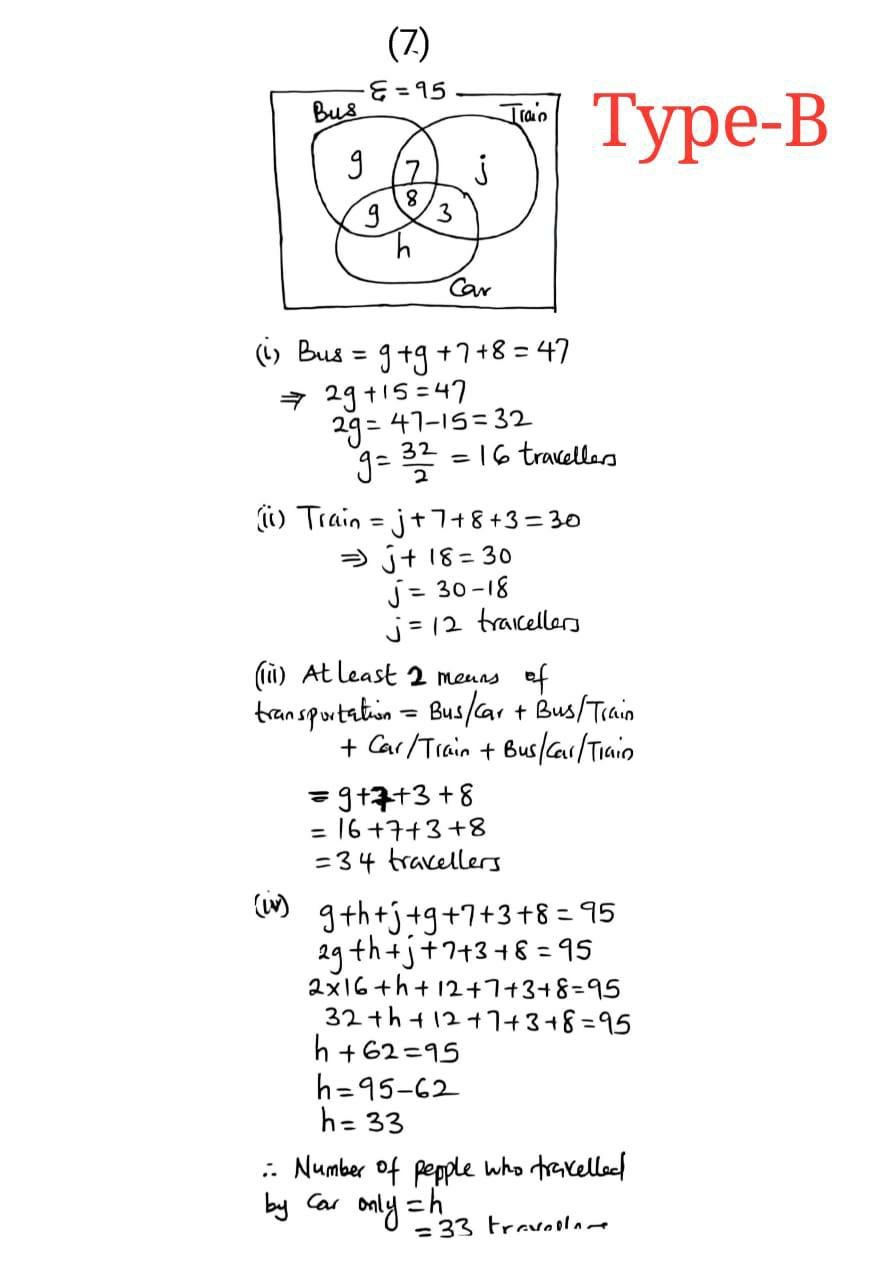 (7.)
Ɛ = 95
Type-B
Bus
Train
g
7
j
8
g
3
h
Car
(i) Bus = g+g+7+8 = 47
⇒ 2g+15=47
2g= 47-15=32
g= 32/2 = 16 travellers
(ii) Train = j+7+8+3=30
⇒ j+18=30
j= 30-18
j=12 travellers
(iii) At least 2 means of
transportation = Bus/Car + Bus/Train
+ Car/Train + Bus/Car/Train
= g+7+3+8
= 16+7+3+8
=34 travellers
(iv) g+h+j+g+7+3+8=95
2g+h+j+7+3+8=95
2x16+h+12+7+3+8=95
32+h+12+7+3+8=95
h+62=95
h=95-62
h= 33
∴ Number of people who travelled
by Car only =h
=33